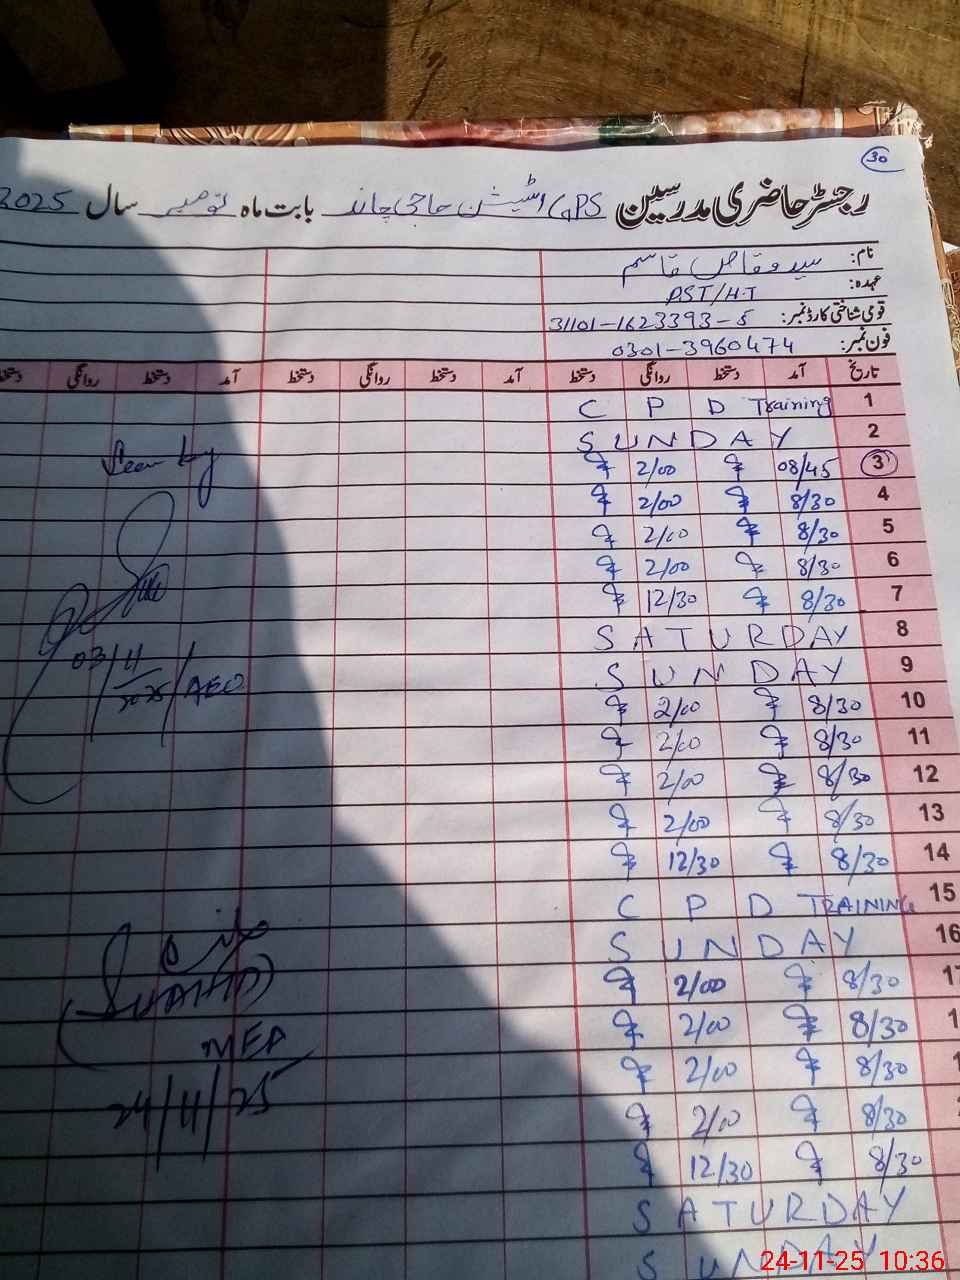 30
رجسٹر حاضری مدرسین GPS اسٹیشن حاجی چاند بابت ماہ نومبر سال 2025
نام: سید وقاص قاسم
عہدہ: PST/H.T
قومی شناختی کارڈ نمبر: 31101-1623393-5
فون نمبر: 0301-3960474
تاریخ آمد دستخط روانگی دستخط آمد دستخط روانگی دستخط آمد دستخط روانگی دستخط
1 C P D Training
2 SUNDAY
3 08/45 2/00
4 8/30 2/00
5 8/30 2/00
6 8/30 2/00
7 8/30 12/30
8 SATURDAY
9 SUNDAY
10 8/30 2/00
11 8/30 2/00
12 8/30 2/00
13 8/30 2/00
14 8/30 12/30
15 C P D TRAINING
16 SUNDAY
17 8/30 2/00
1 8/30 2/00
1 8/30 2/00
2 8/30 2/00
8/30 12/30
SATURDAY
SUNDAY
Seen by
03/11/2025/AEO
MEA
24/11/25
24-11-25 10:36